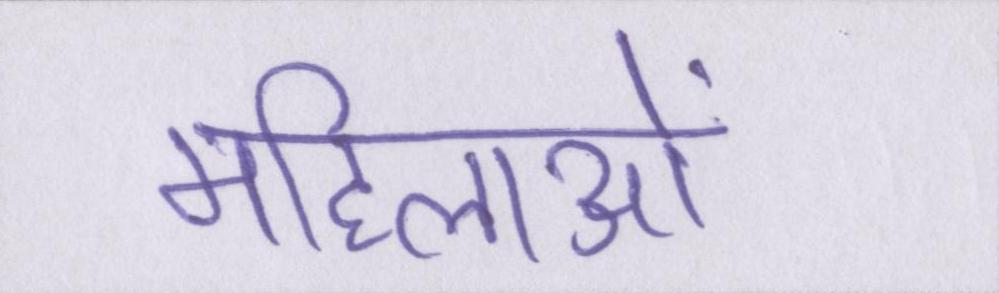 महिलाओं